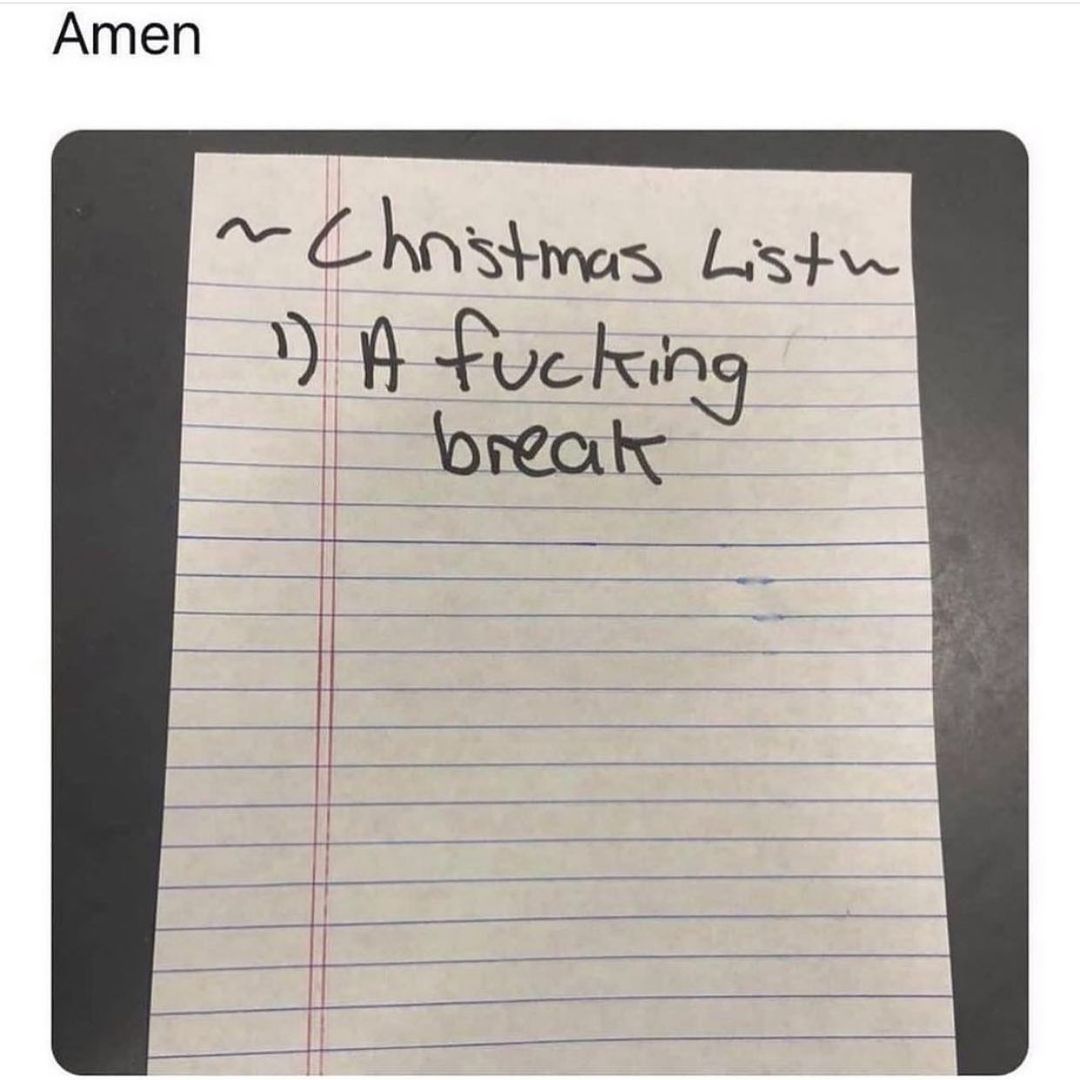 Amen
~ Christmas List ~
1) A fucking
break